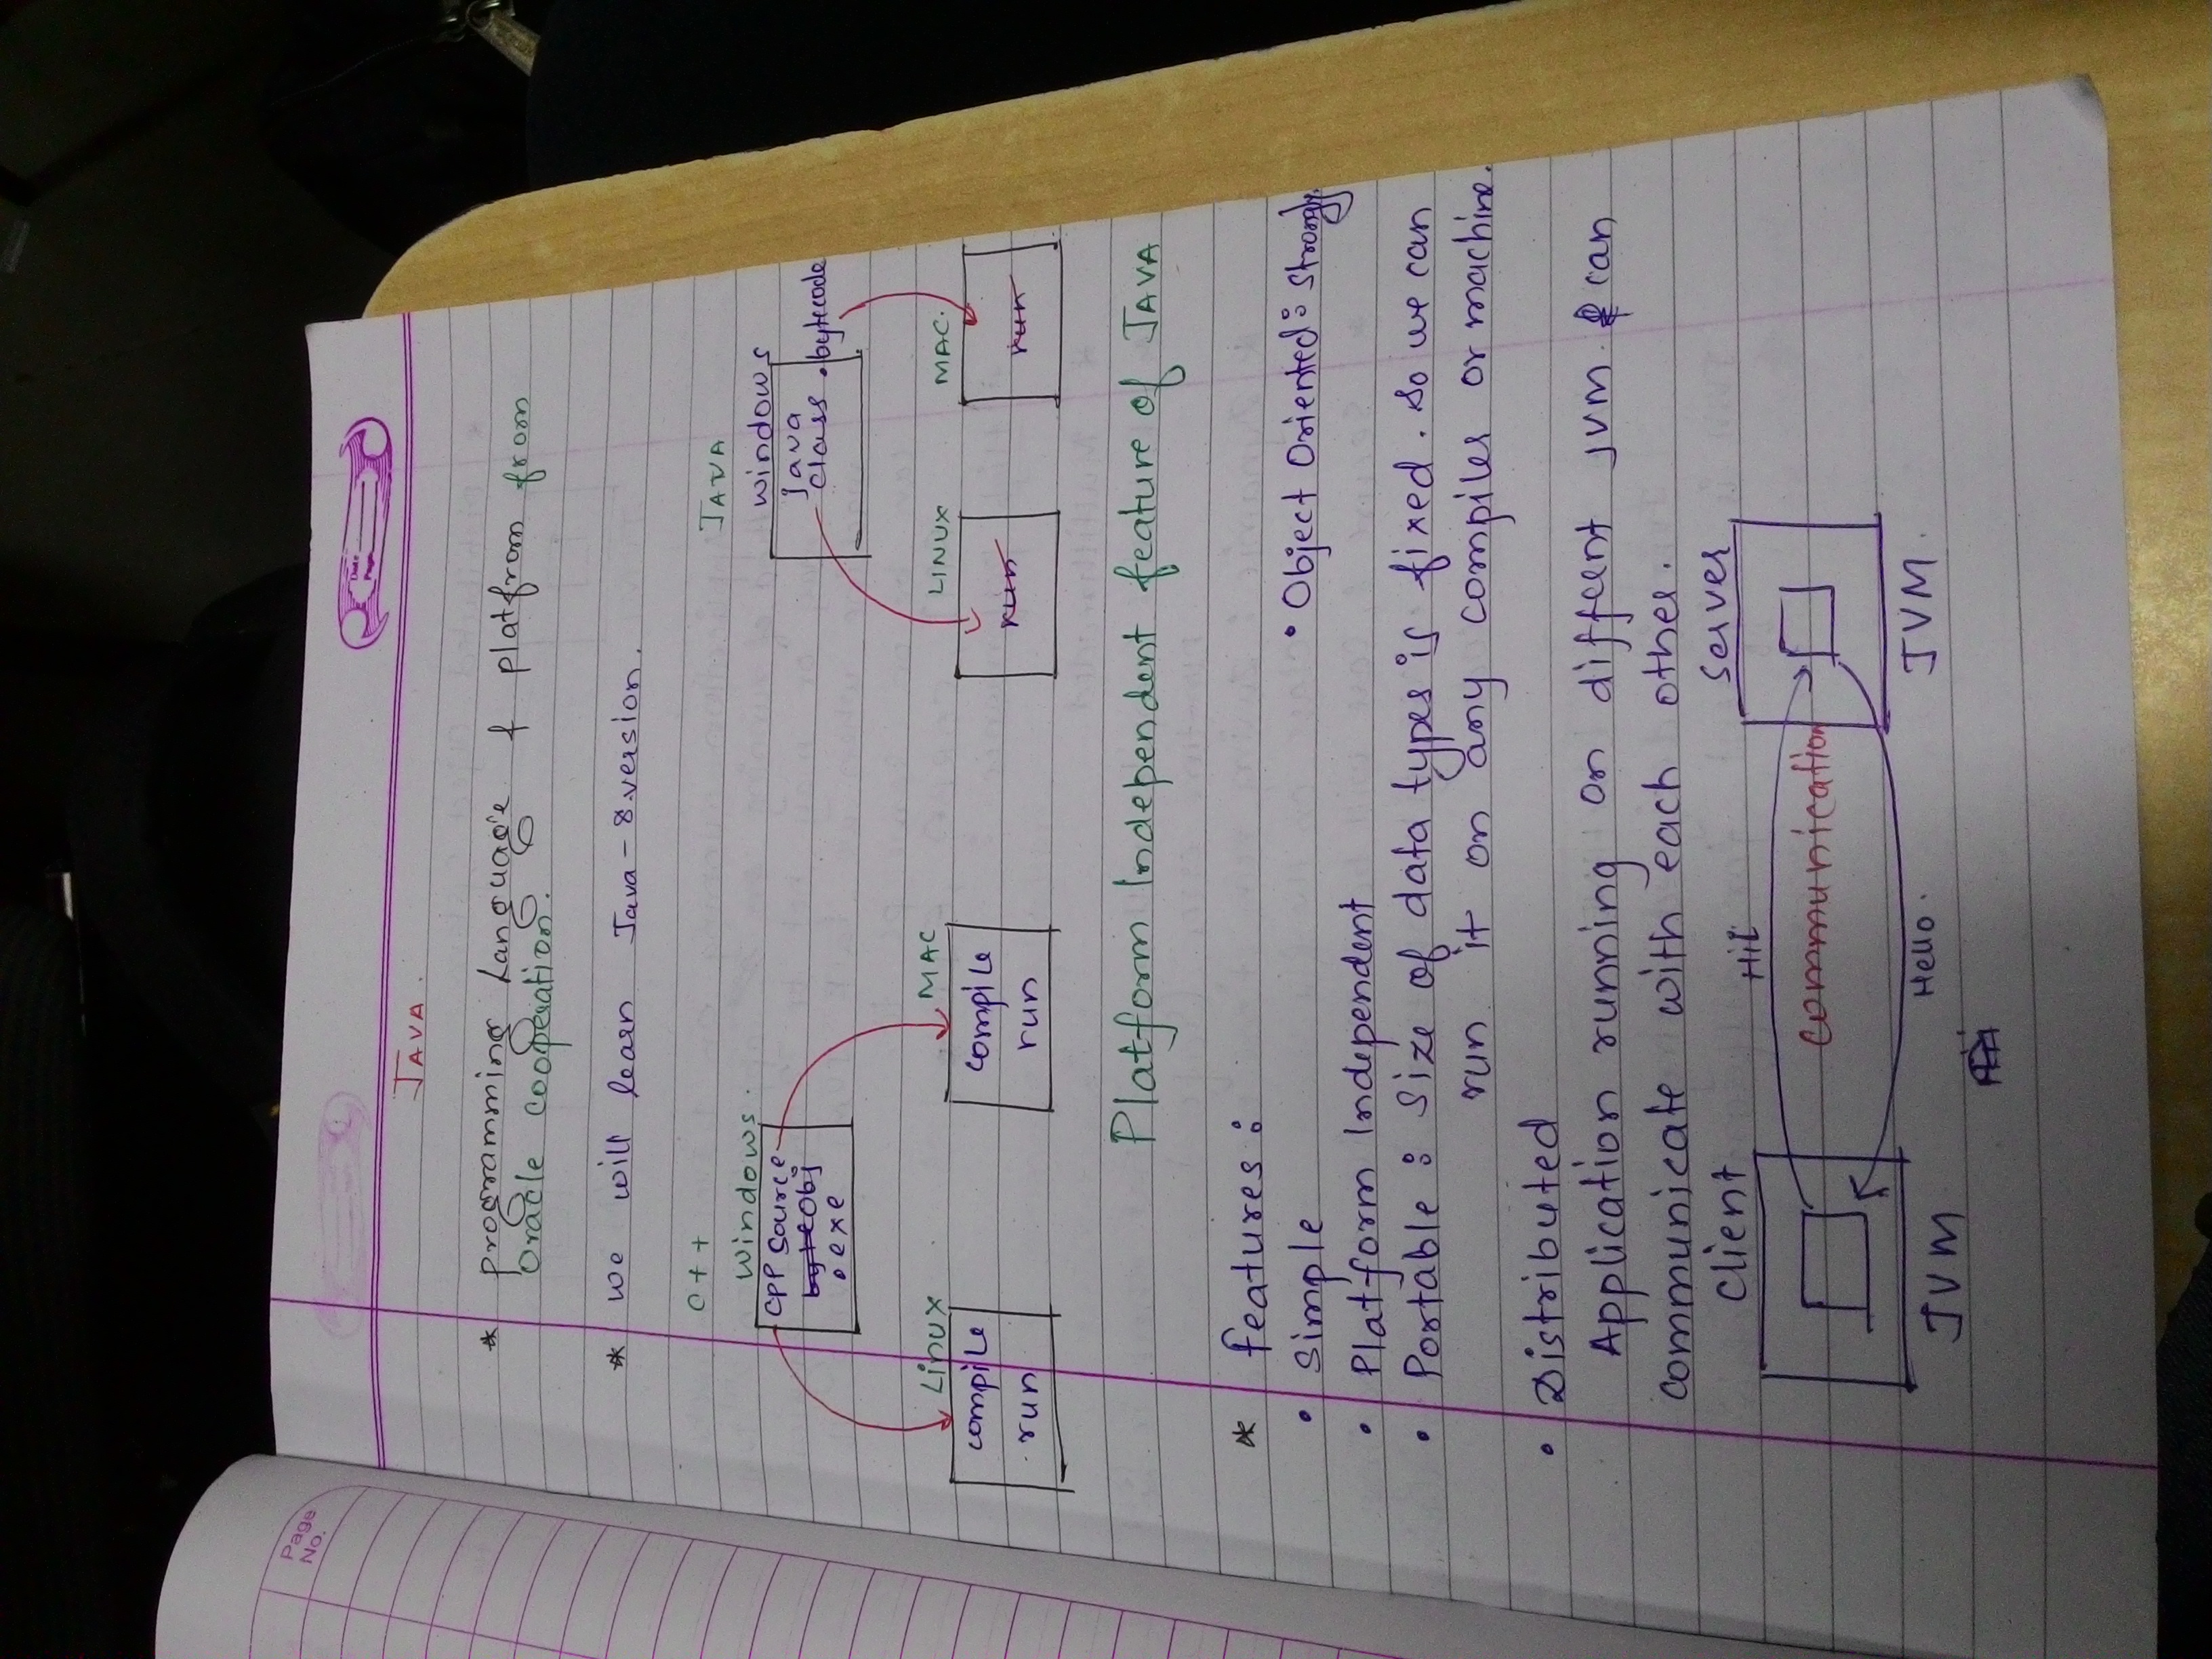 Page
No.
Date
Page
JAVA.
* programming Language & platfrom from
Oracle cooperation.
* we will learn Java-8.version.
C++
JAVA
windows.
windows
cpp source
byte obj
.exe
java
class .bytecode
Linux
MAC
LINUX
MAC.
compile
run
compile
run
run
run
Platform Independent feature of JAVA
* features :
• Simple
• Object Oriented : Strongly.
• Platform Independent
• Portable : Size of data types is fixed. So we can
run it on any compiler or machine.
• Distributed
Application running on diffeent JVM & can
communicate with each other.
Client
Server
Hi!
communication
Hello.
JVM
JVM.